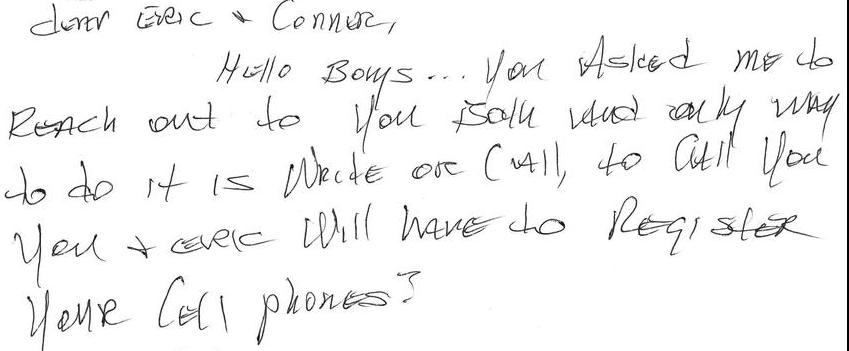 dear Eric & Connor,
Hello Boys... You Asked me to
Reach out to You Both And only way
to do it is Write or Call, to Call You
You + Eric Will have to Register
Your Cell phones?